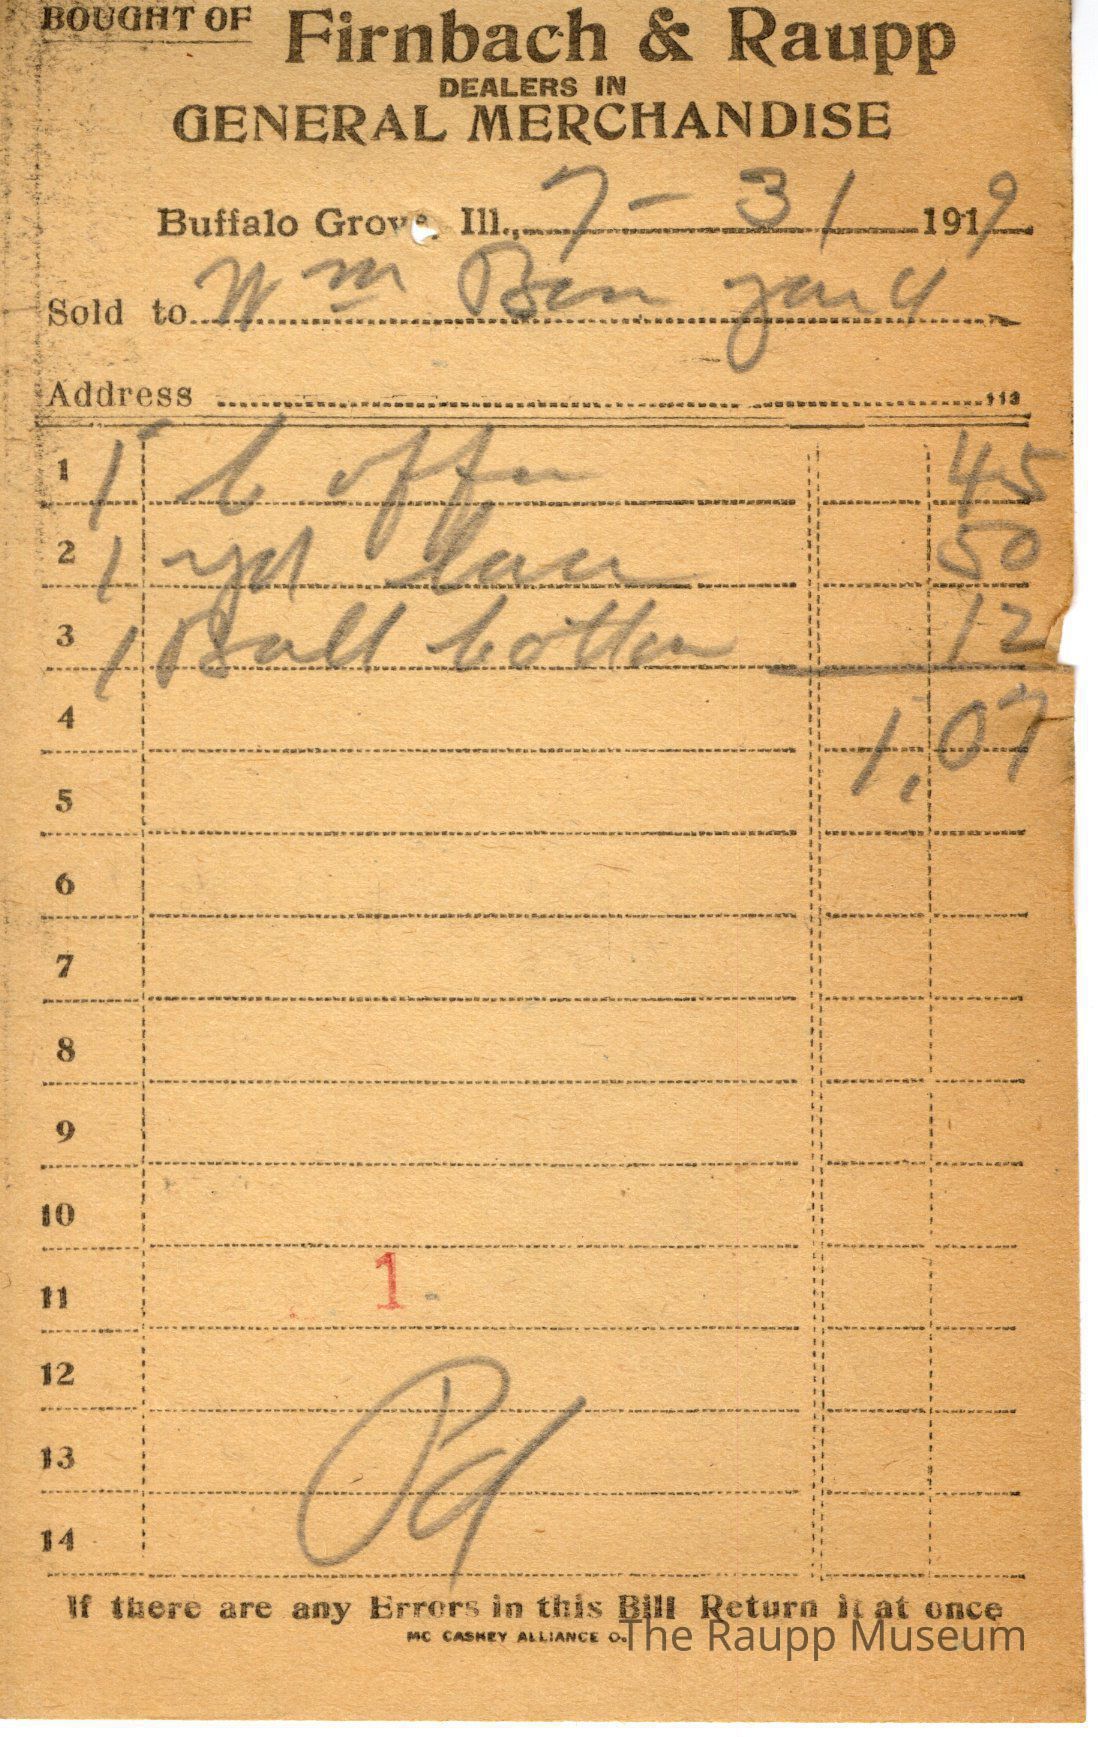 BOUGHT OF Firnbach & Raupp
DEALERS IN
GENERAL MERCHANDISE
Buffalo Grove, Ill., 7-31 1919
Sold to Wm
Address 113
1 1 45
2 1 yd lace 50
3 1 Ball 12
4 1,07
5
6
7
8
9
10
11 1
12
13 Pd
14
If there are any Errors in this Bill Return it at once
MC CASKEY ALLIANCE O.
The Raupp Museum